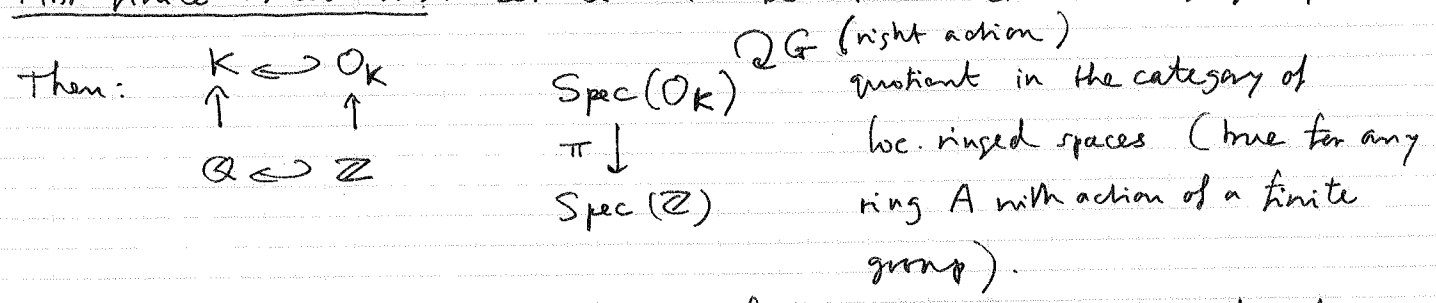 Then: K ↩ O_K
↑ ↑
Q ↪ Z
Spec(O_K) ↻ G (right action)
π ↓
Spec(Z)
quotient in the category of
loc. ringed spaces (true for any
ring A with action of a finite
group).